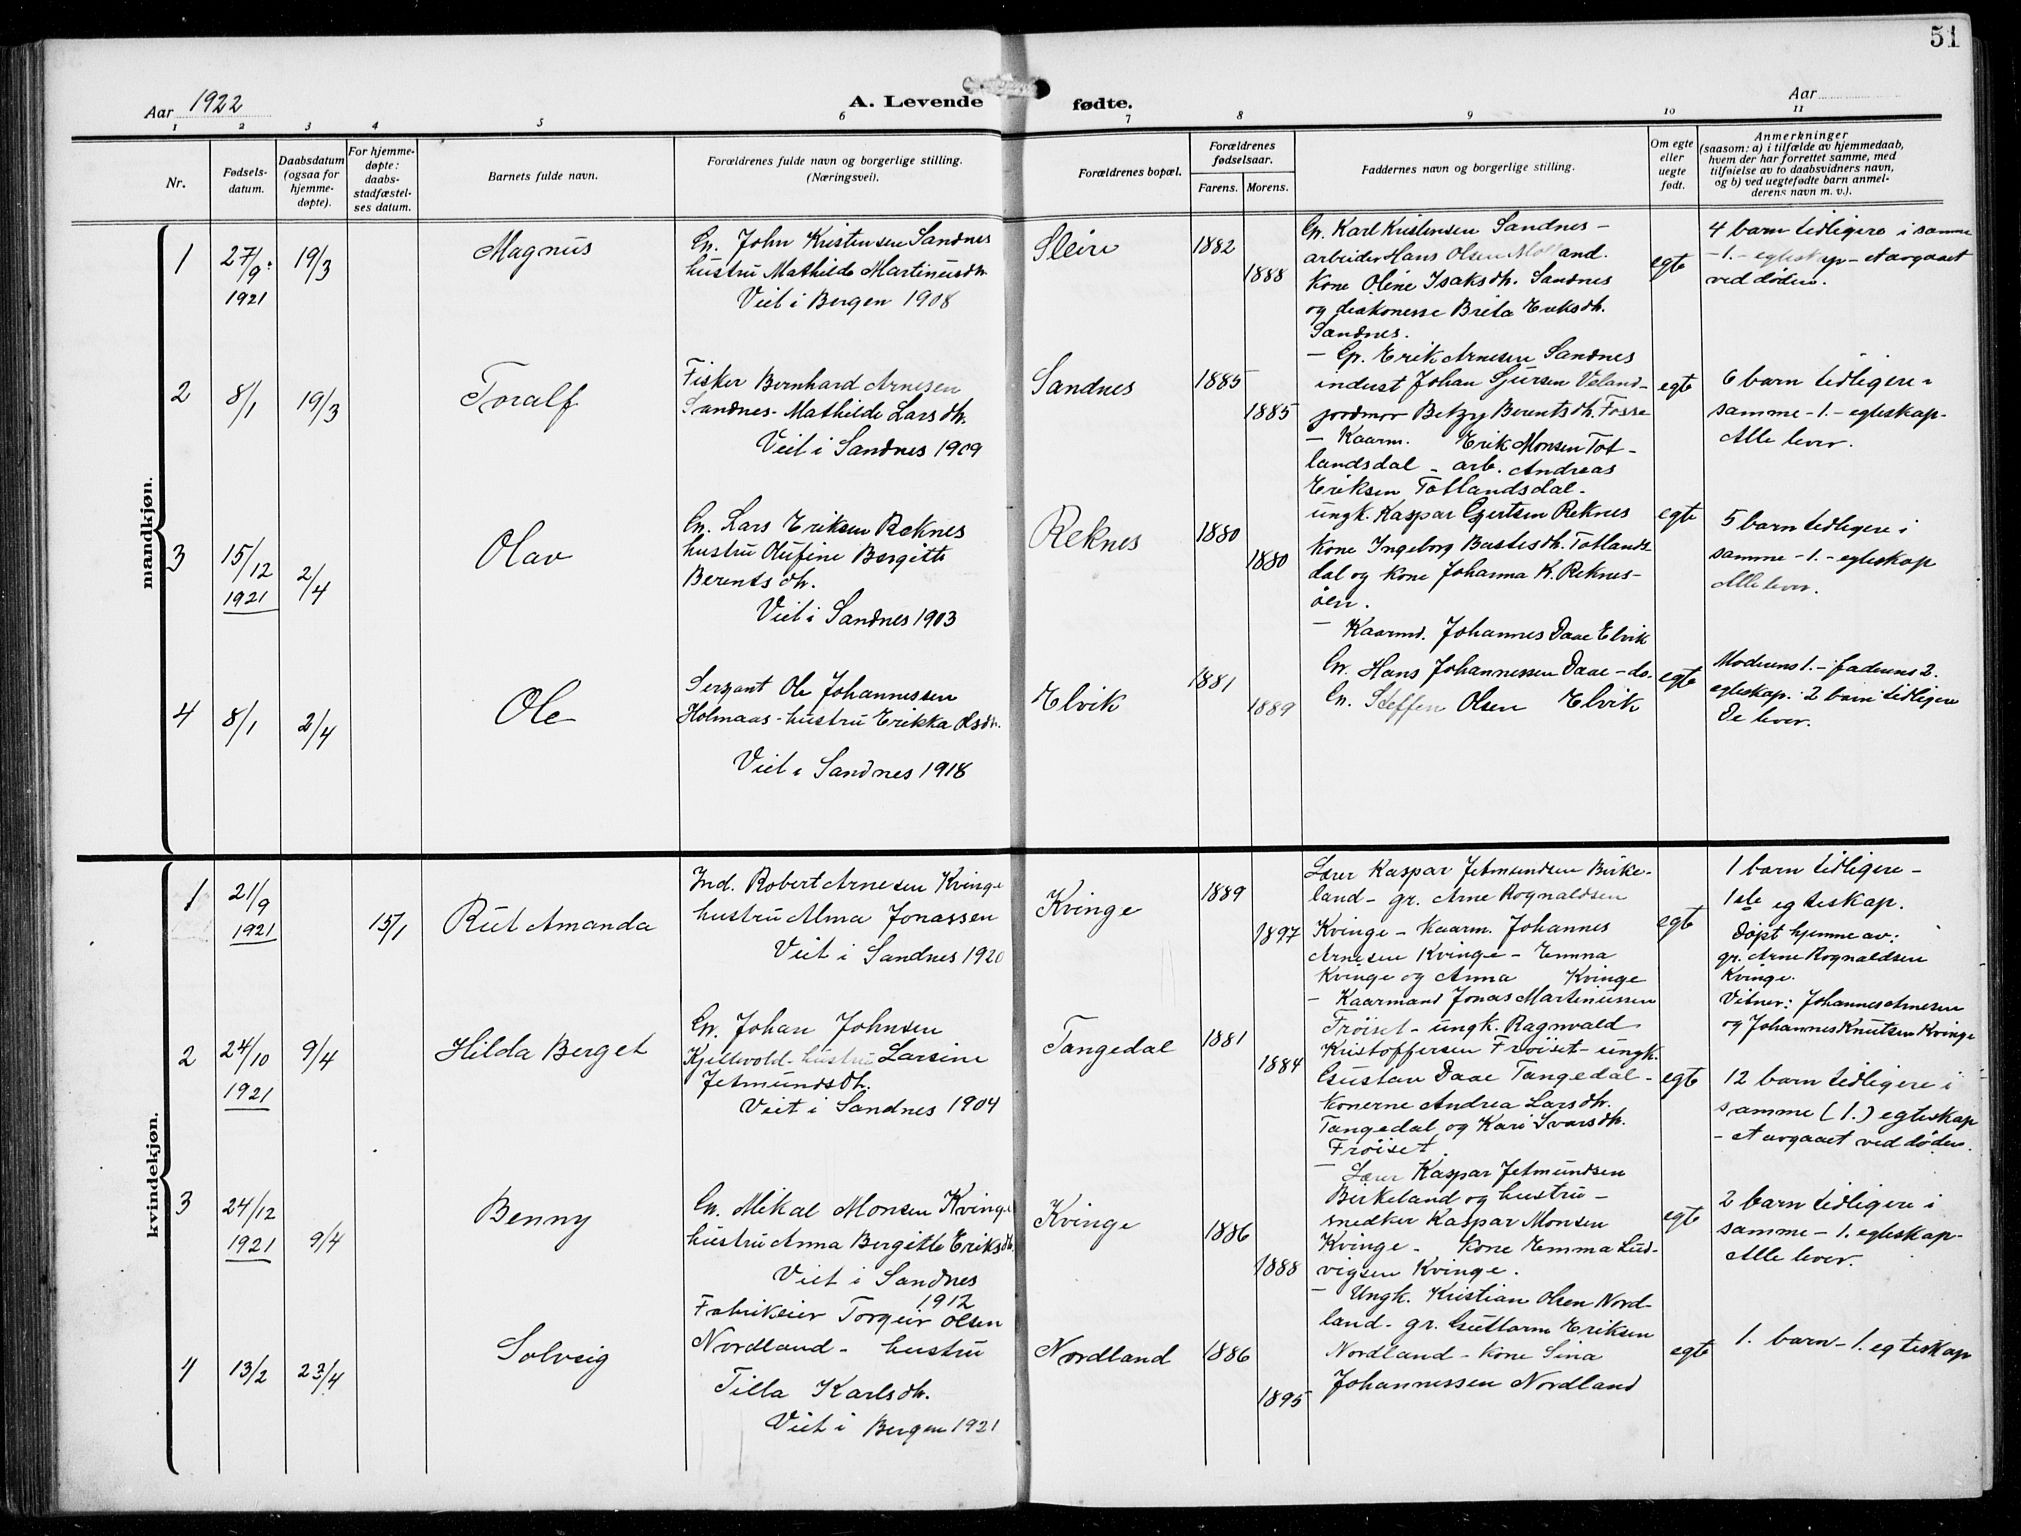 51
Aar 1922
A. Levende fødte.
Aar
1 2 3 4 5 6 7 8 9 10 11
Nr.
Fødsels-
datum.
Daabsdatum
(ogsaa for
hjemme-
døpte).
For hjemme-
døpte:
daabs-
stadfæstel-
ses datum.
Barnets fulde navn.
Forældrenes fulde navn og borgerlige stilling.
(Næringsvei).
Forældrenes bopæl.
Forældrenes
fødselsaar.
Farens. Morens.
Faddernes navn og borgerlige stilling.
Om egte
eller
uegte
født.
Anmerkninger
(saasom: a) i tilfælde av hjemmedaab,
hvem der har forrettet samme, med
tilføielse av to daabsvidners navn,
og b) ved uegtefødte barn anmel-
derens navn m. v.).
mandkjøn.
1
27/9
1921
19/3
Magnus
Gr. John Kristensen Sandnes
hustru Mathilde Martinusdtr.
Viet i Bergen 1908
Sleire
1882
1888
Gr. Karl Kristensen Sandnes -
arbeider Hans Olsen Molland.
Kone Oline Isaksdtr. Sandnes
og diakonesse Brita Eriksdtr.
Sandnes.
egte
4 barn tidligere i samme
- 1. - egteskap - et avgaaet
ved døden.
2
8/1
19/3
Toralf
Fisker Bernhard Arnesen
Sandnes - Mathilde Larsdtr.
Viet i Sandnes 1909
Sandnes
1885
1885
- Gr. Erik Arnesen Sandnes
indust Johan Sjursen Veland -
jordmor Betzy Berentsdtr. Fosse
egte
6 barn tidligere i
samme - 1. - egteskap -
Alle lever.
3
15/12
1921
2/4
Olav
Gr. Lars Eriksen Reknes
hustru Olufine Bergitte
Berentsdtr.
Viet i Sandnes 1903
Reknes
1880
1880
- Kaarm. Erik Monsen Tot-
landsdal - arb. Andreas
Eriksen Totlandsdal -
ungk. Kaspar Gjertsen Reknes
Kone Ingeborg Bastesdtr. Totlands-
dal og kone Johanna K. Reknes-
øen.
egte
5 barn tidligere i
samme - 1. - egteskap
Alle lever.
4
8/1
2/4
Ole
Sergant Ole Johannessen
Holmaas - hustru Erikka Olsdtr.
Viet i Sandnes 1918
Elvik
1881
1889
- Kaarmd. Johannes Daae Elvik
Gr. Hans Johannessen Daae - ds.
Gr. Steffen Olsen Elvik
egte
Moderens 1. - faderens 2.
egteskap. 2 barn tidligere
De lever.
kvindekjøn.
1
21/9
1921
15/1
Rut Amanda
Ind. Robert Arnesen Kvinge
hustru Alma Jonassen
Viet i Sandnes 1920
Kvinge
1889
1897
Lærer Kaspar Jetmundsen Birke-
land - gr. Arne Rognaldsen
Kvinge - Kaarm. Johannes
Arnesen Kvinge - Emma
Kvinge og Anna Kvinge
egte
1 barn tidligere -
1ste egteskap.
Døpt hjemme av:
gr. Arne Rognaldsen
Kvinge.
Vitner: Johannes Arnesen
og Johannes Knutsen Kvinge
2
24/10
1921
9/4
Hilda Berget
Gr. Johan Johnsen
Kjellvold - hustru Larsine
Jetmundsdtr.
Viet i Sandnes 1904
Tangedal
1881
1884
- Kaarmand Jonas Martinussen
Frøiset - ungk. Ragnvald
Kristoffersen Frøiset - ungk.
Gustav Daae Tangedal -
Konerne Andrea Larsdtr.
Tangedal og Kari Ivarsdtr.
Frøiset.
egte
12 barn tidligere i
samme (1.) egteskap
- et avgaaet ved døden.
3
24/12
1921
9/4
Benny
Gr. Mikal Monsen Kvinge
hustru Anna Bergitte Eriksdtr.
Viet i Sandnes
1912
Kvinge
1886
1888
- Lærer Kaspar Jetmundsen
Birkeland og hustru -
snedker Kaspar Monsen
Kvinge - Kone Emma Lud-
vigsen Kvinge.
egte
2 barn tidligere i
samme - 1. egteskap -
Alle lever.
4
13/2
23/4
Solveig
Fabrikeier Torgeir Olsen
Nordland - hustru
Tilla Karlsdtr.
Viet i Bergen 1921
Nordland
1886
1895
- Ungk. Kristian Olsen Nord-
land - gr. Guttorm Eriksen
Nordland - Kone Sina
Johannessen Nordland
egte
1. barn - 1. egteskap